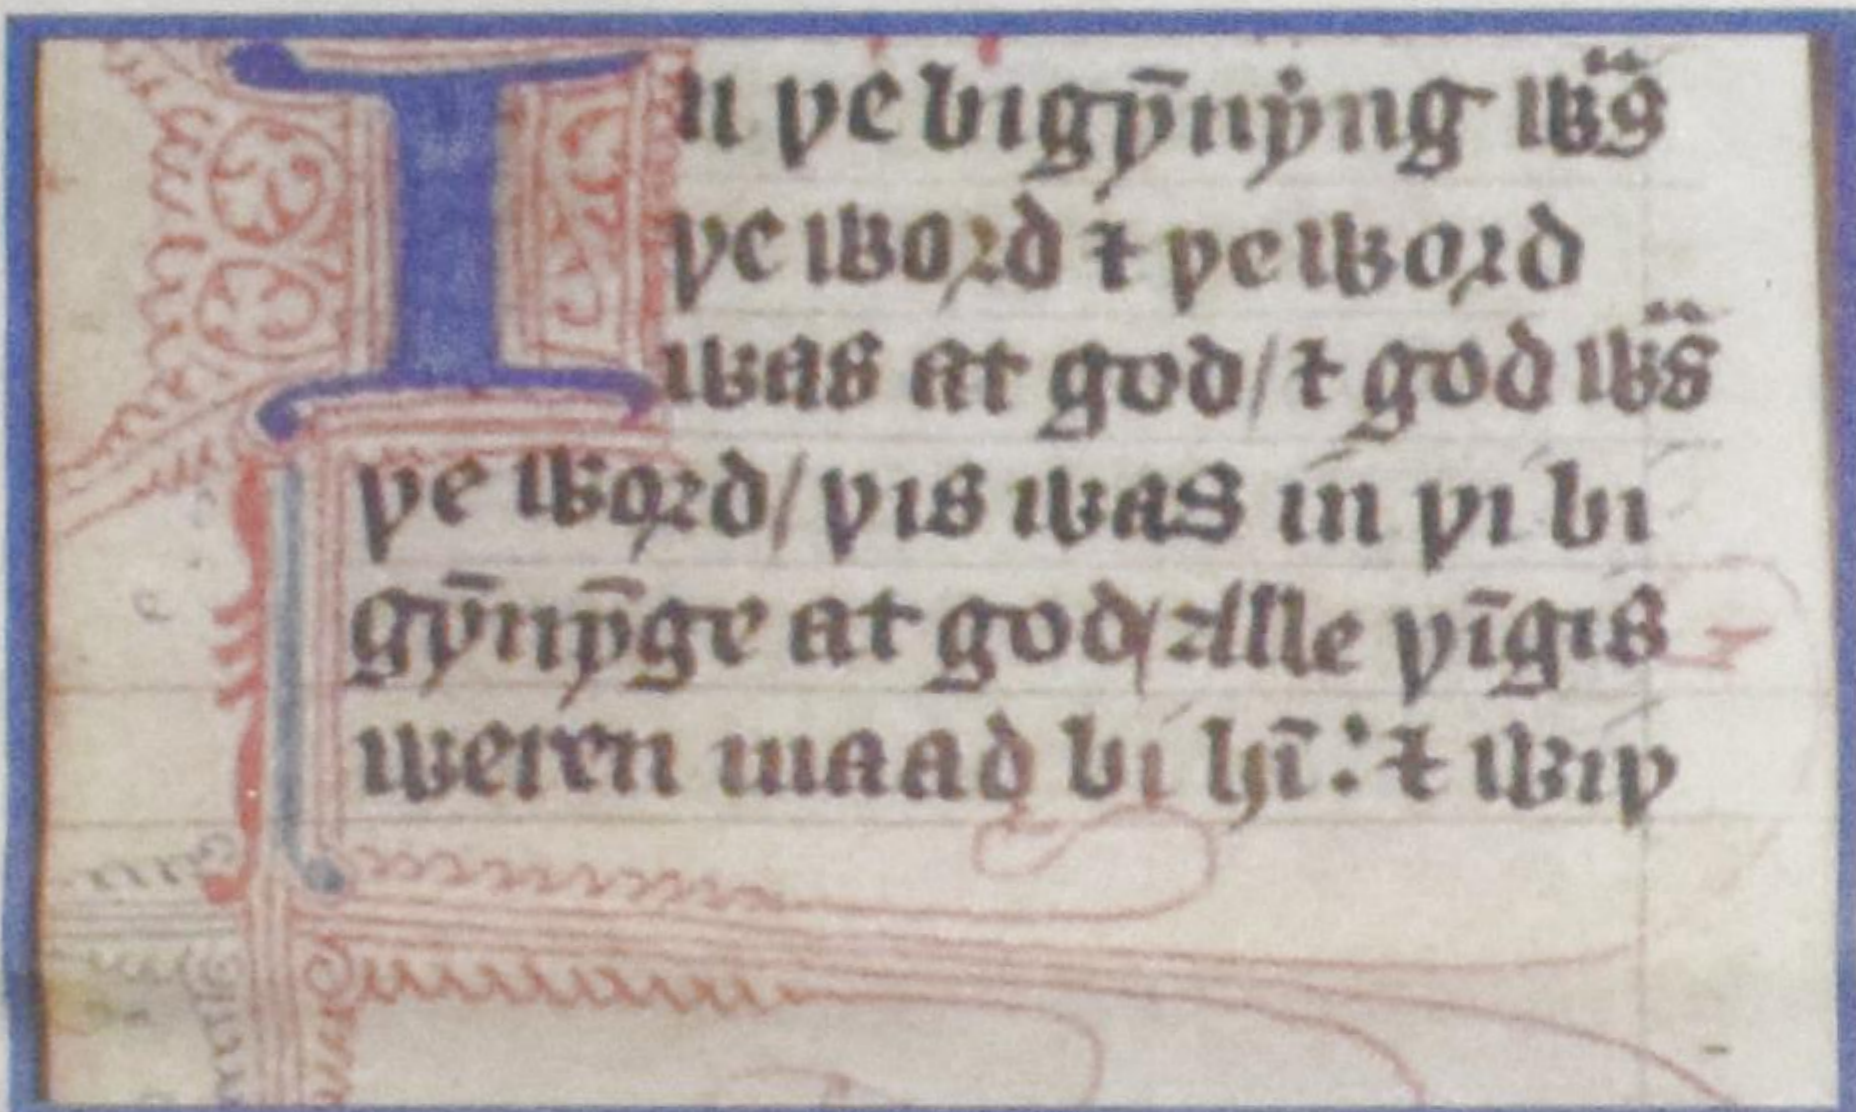 In þe bigyn̄nyng wͣs
þe word ⁊ þe word
was at god/ ⁊ god wͣs
þe word/ þis was in þi bi
gyn̄nyn̄ge at god/ Alle þīgis
weren maad bi hī: ⁊ wiþ